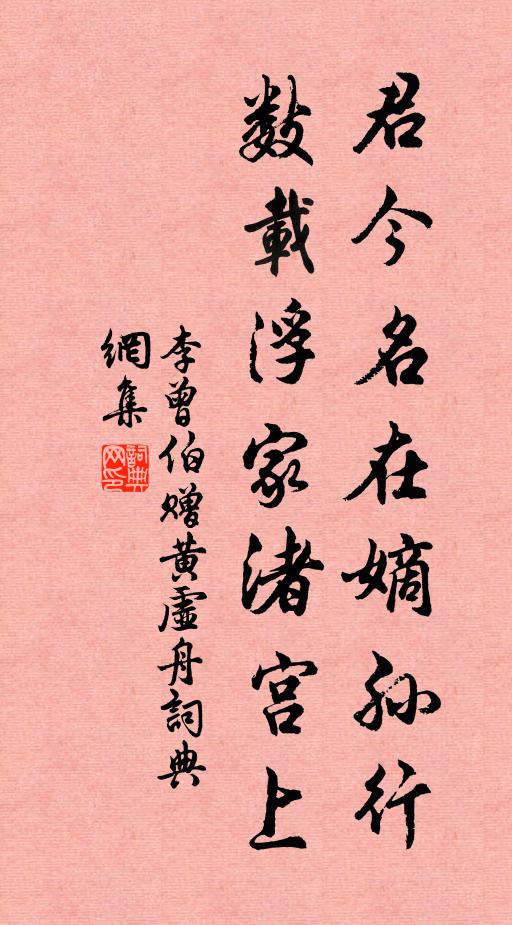 君今名在嫡孙行
数载浮家渚宫上
李曾伯赠黄虚舟詞典
網集
詞典网印